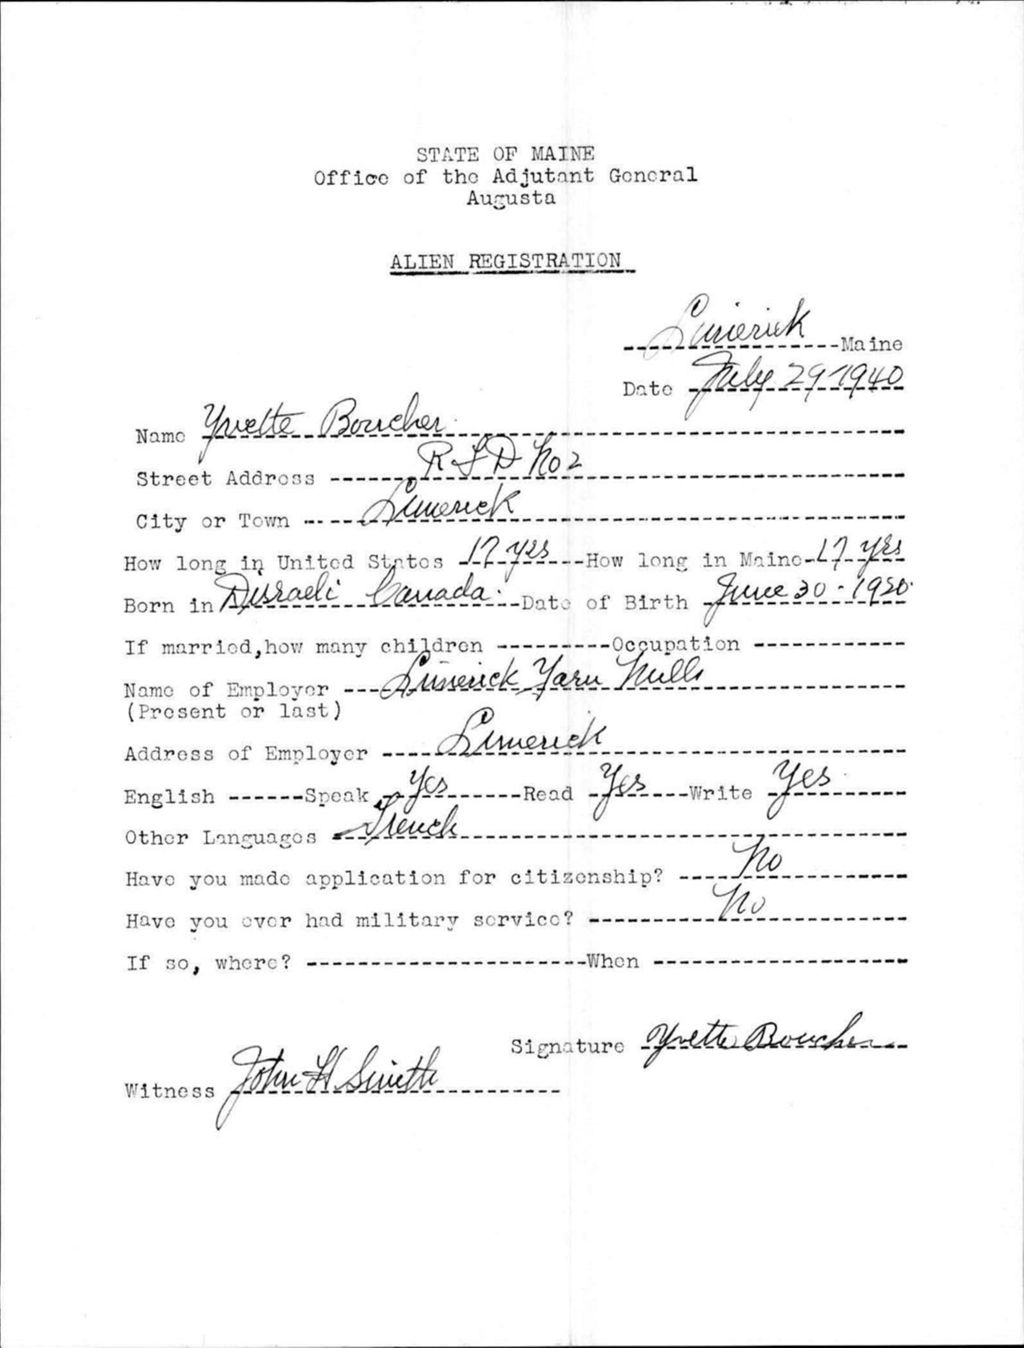 STATE OF MAINE
Office of the Adjutant General
Augusta
ALIEN REGISTRATION
Limerick Maine
Date July 29 1940
Name Yvette Boucher
Street Address R F D No 2
City or Town Limerick
How long in United States 17 yrs How long in Maine 17 yrs
Born in Disraeli Canada. Date of Birth June 30 - 1920
If married, how many children Occupation
Name of Employer Limerick Yarn Mills
(Present or last)
Address of Employer Limerick
English Speak Yes Read Yes Write Yes
Other Languages French
Have you made application for citizenship? No
Have you ever had military service? No
If so, where? When
Signature Yvette Boucher
Witness John H Smith